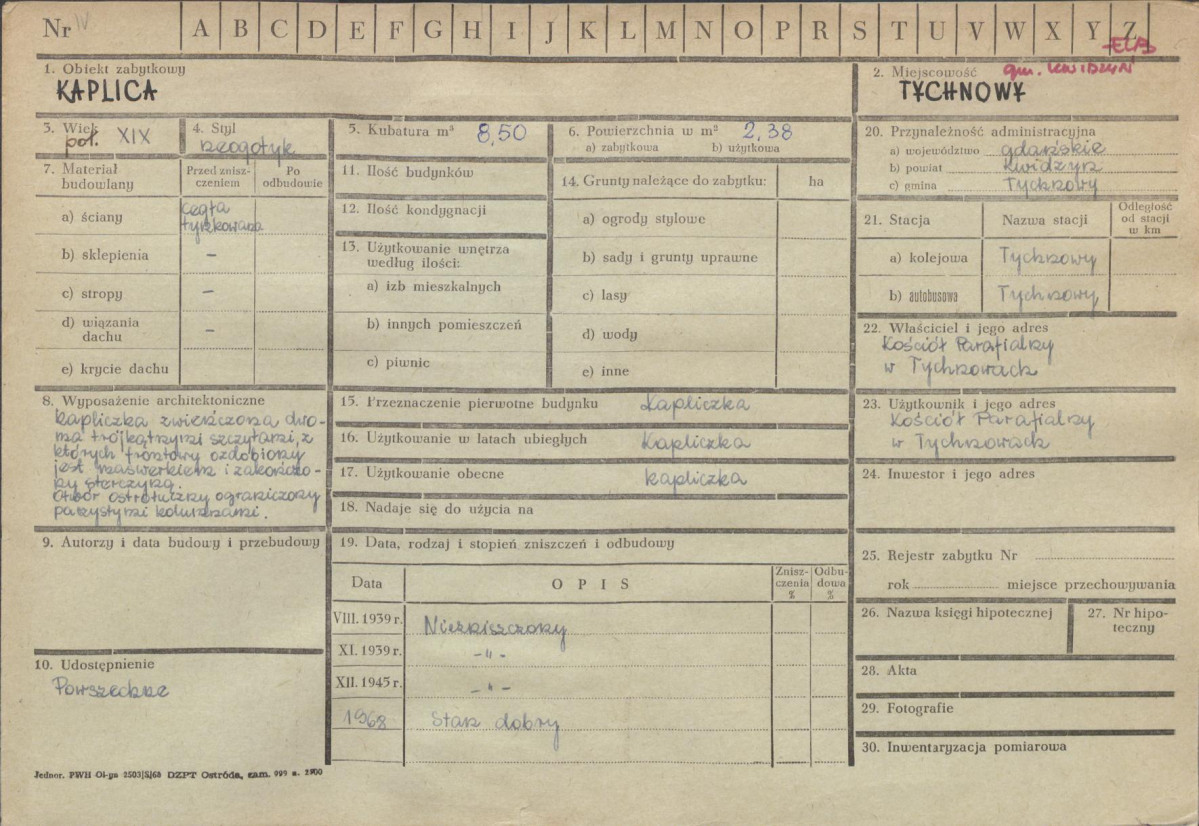 Nr IV A B C D E F G H I J K L M N O P R S T U V W X Y Z
ELB
1. Obiekt zabytkowy
KAPLICA
2. Miejscowość gm. KWIDZYŃ
TYCHNOWY
3. Wiek
poł. XIX
4. Styl
neogotyk
5. Kubatura m³ 8,50
6. Powierzchnia w m² 2,38
a) zabytkowa b) użytkowa
7. Materiał budowlany
Przed znisz-
czeniem
Po
odbudowie
a) ściany cegła
tynkowana
b) sklepienia –
c) stropy –
d) wiązania
dachu –
e) krycie dachu
8. Wyposażenie architektoniczne
kapliczka zwieńczona dwo-
ma trójkątnymi szczytami, z
których frontowy ozdobiony
jest maswerkiem i zakończo-
ny sterczyną.
Otwór ostrołuczny ograniczony
parzystymi kolumnami.
9. Autorzy i data budowy i przebudowy
10. Udostępnienie
Powszechne
11. Ilość budynków
12. Ilość kondygnacji
13. Użytkowanie wnętrza
według ilości:
a) izb mieszkalnych
b) innych pomieszczeń
c) piwnic
14. Grunty należące do zabytku: ha
a) ogrody stylowe
b) sady i grunty uprawne
c) lasy
d) wody
e) inne
15. Przeznaczenie pierwotne budynku Kapliczka
16. Użytkowanie w latach ubiegłych Kapliczka
17. Użytkowanie obecne kapliczka
18. Nadaje się do użycia na
19. Data, rodzaj i stopień zniszczeń i odbudowy
Data OPIS Znisz-
czenia
% Odbu-
dowa
%
VIII. 1939 r. Niezniszczony
XI. 1939 r. -"-
XII. 1945 r. -"-
1968 Stan dobry
20. Przynależność administracyjna
a) województwo gdańskie
b) powiat Kwidzyn
c) gmina Tychnowy
21. Stacja Nazwa stacji Odległość
od stacji
w km
a) kolejowa Tychnowy
b) autobusowa Tychnowy
22. Właściciel i jego adres
Kościół Parafialny
w Tychnowach
23. Użytkownik i jego adres
Kościół Parafialny
w Tychnowach
24. Inwestor i jego adres
25. Rejestr zabytku Nr
rok miejsce przechowywania
26. Nazwa księgi hipotecznej
27. Nr hipo-
teczny
28. Akta
29. Fotografie
30. Inwentaryzacja pomiarowa
Jednor. PWH Ol-yn 2503/S/68 DZPT Ostróda, zam. 999 n. 2500